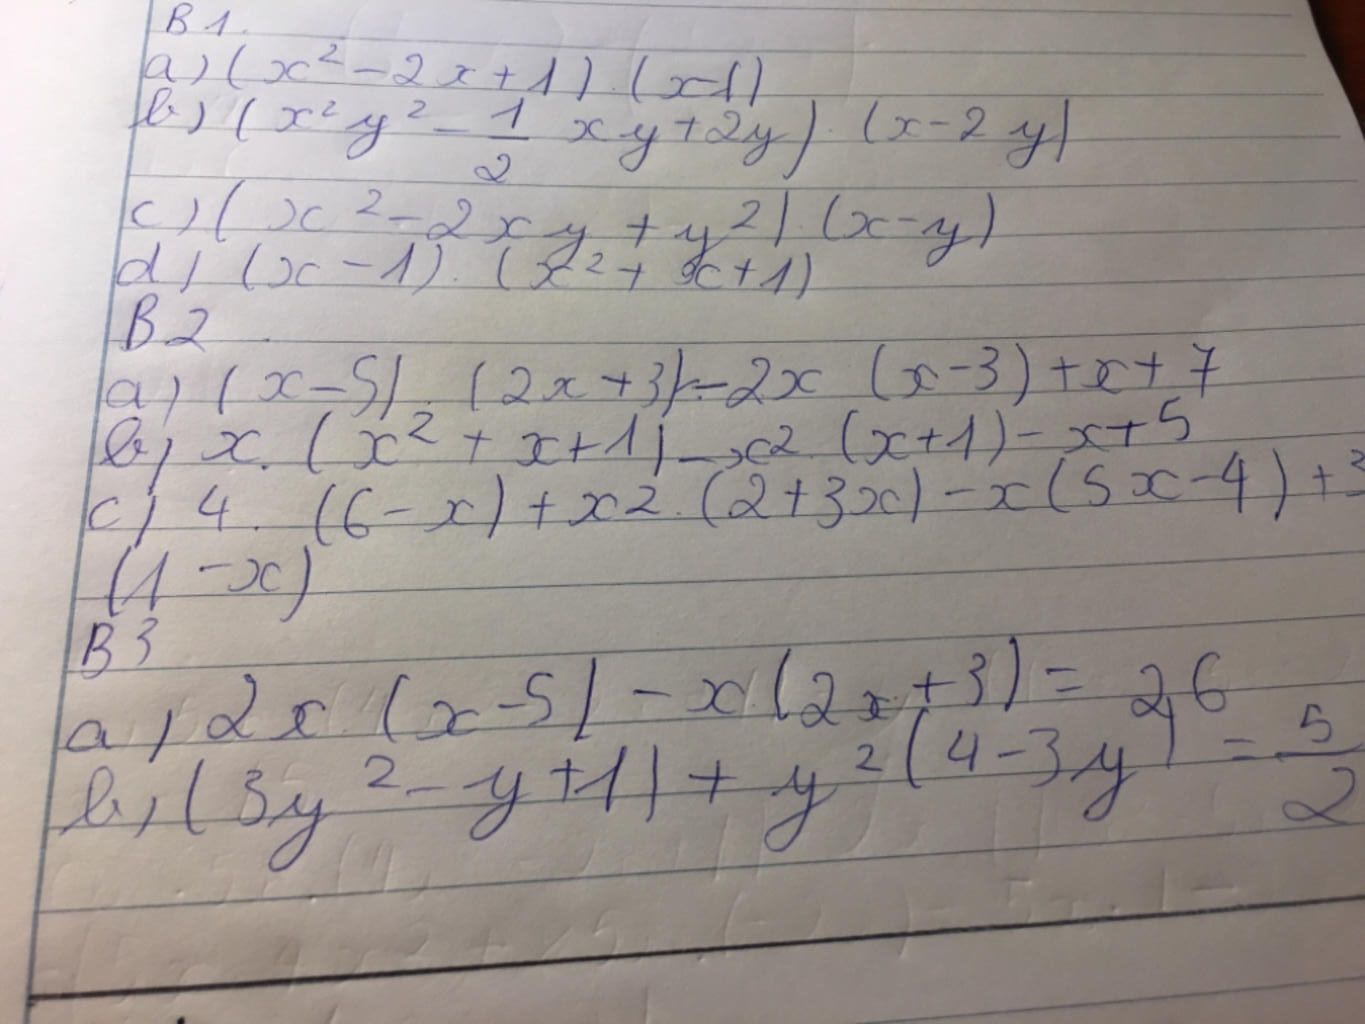 B1.
a) (x² - 2x + 1). (x-1)
b) (x² y² - 1/2 xy + 2y). (x - 2y)
c) (x² - 2xy + y²). (x - y)
d) (x - 1). (x² + x + 1)
B2
a) (x - 5). (2x + 3) - 2x (x - 3) + x + 7
b) x. (x² + x + 1) - x². (x + 1) - x + 5
c) 4. (6 - x) + x2. (2 + 3x) - x (5x - 4) + 3
(1 - x)
B3
a) 2x. (x - 5) - x. (2x + 3) = 26
b) (3y² - y + 1) + y² (4 - 3y) = 5/2